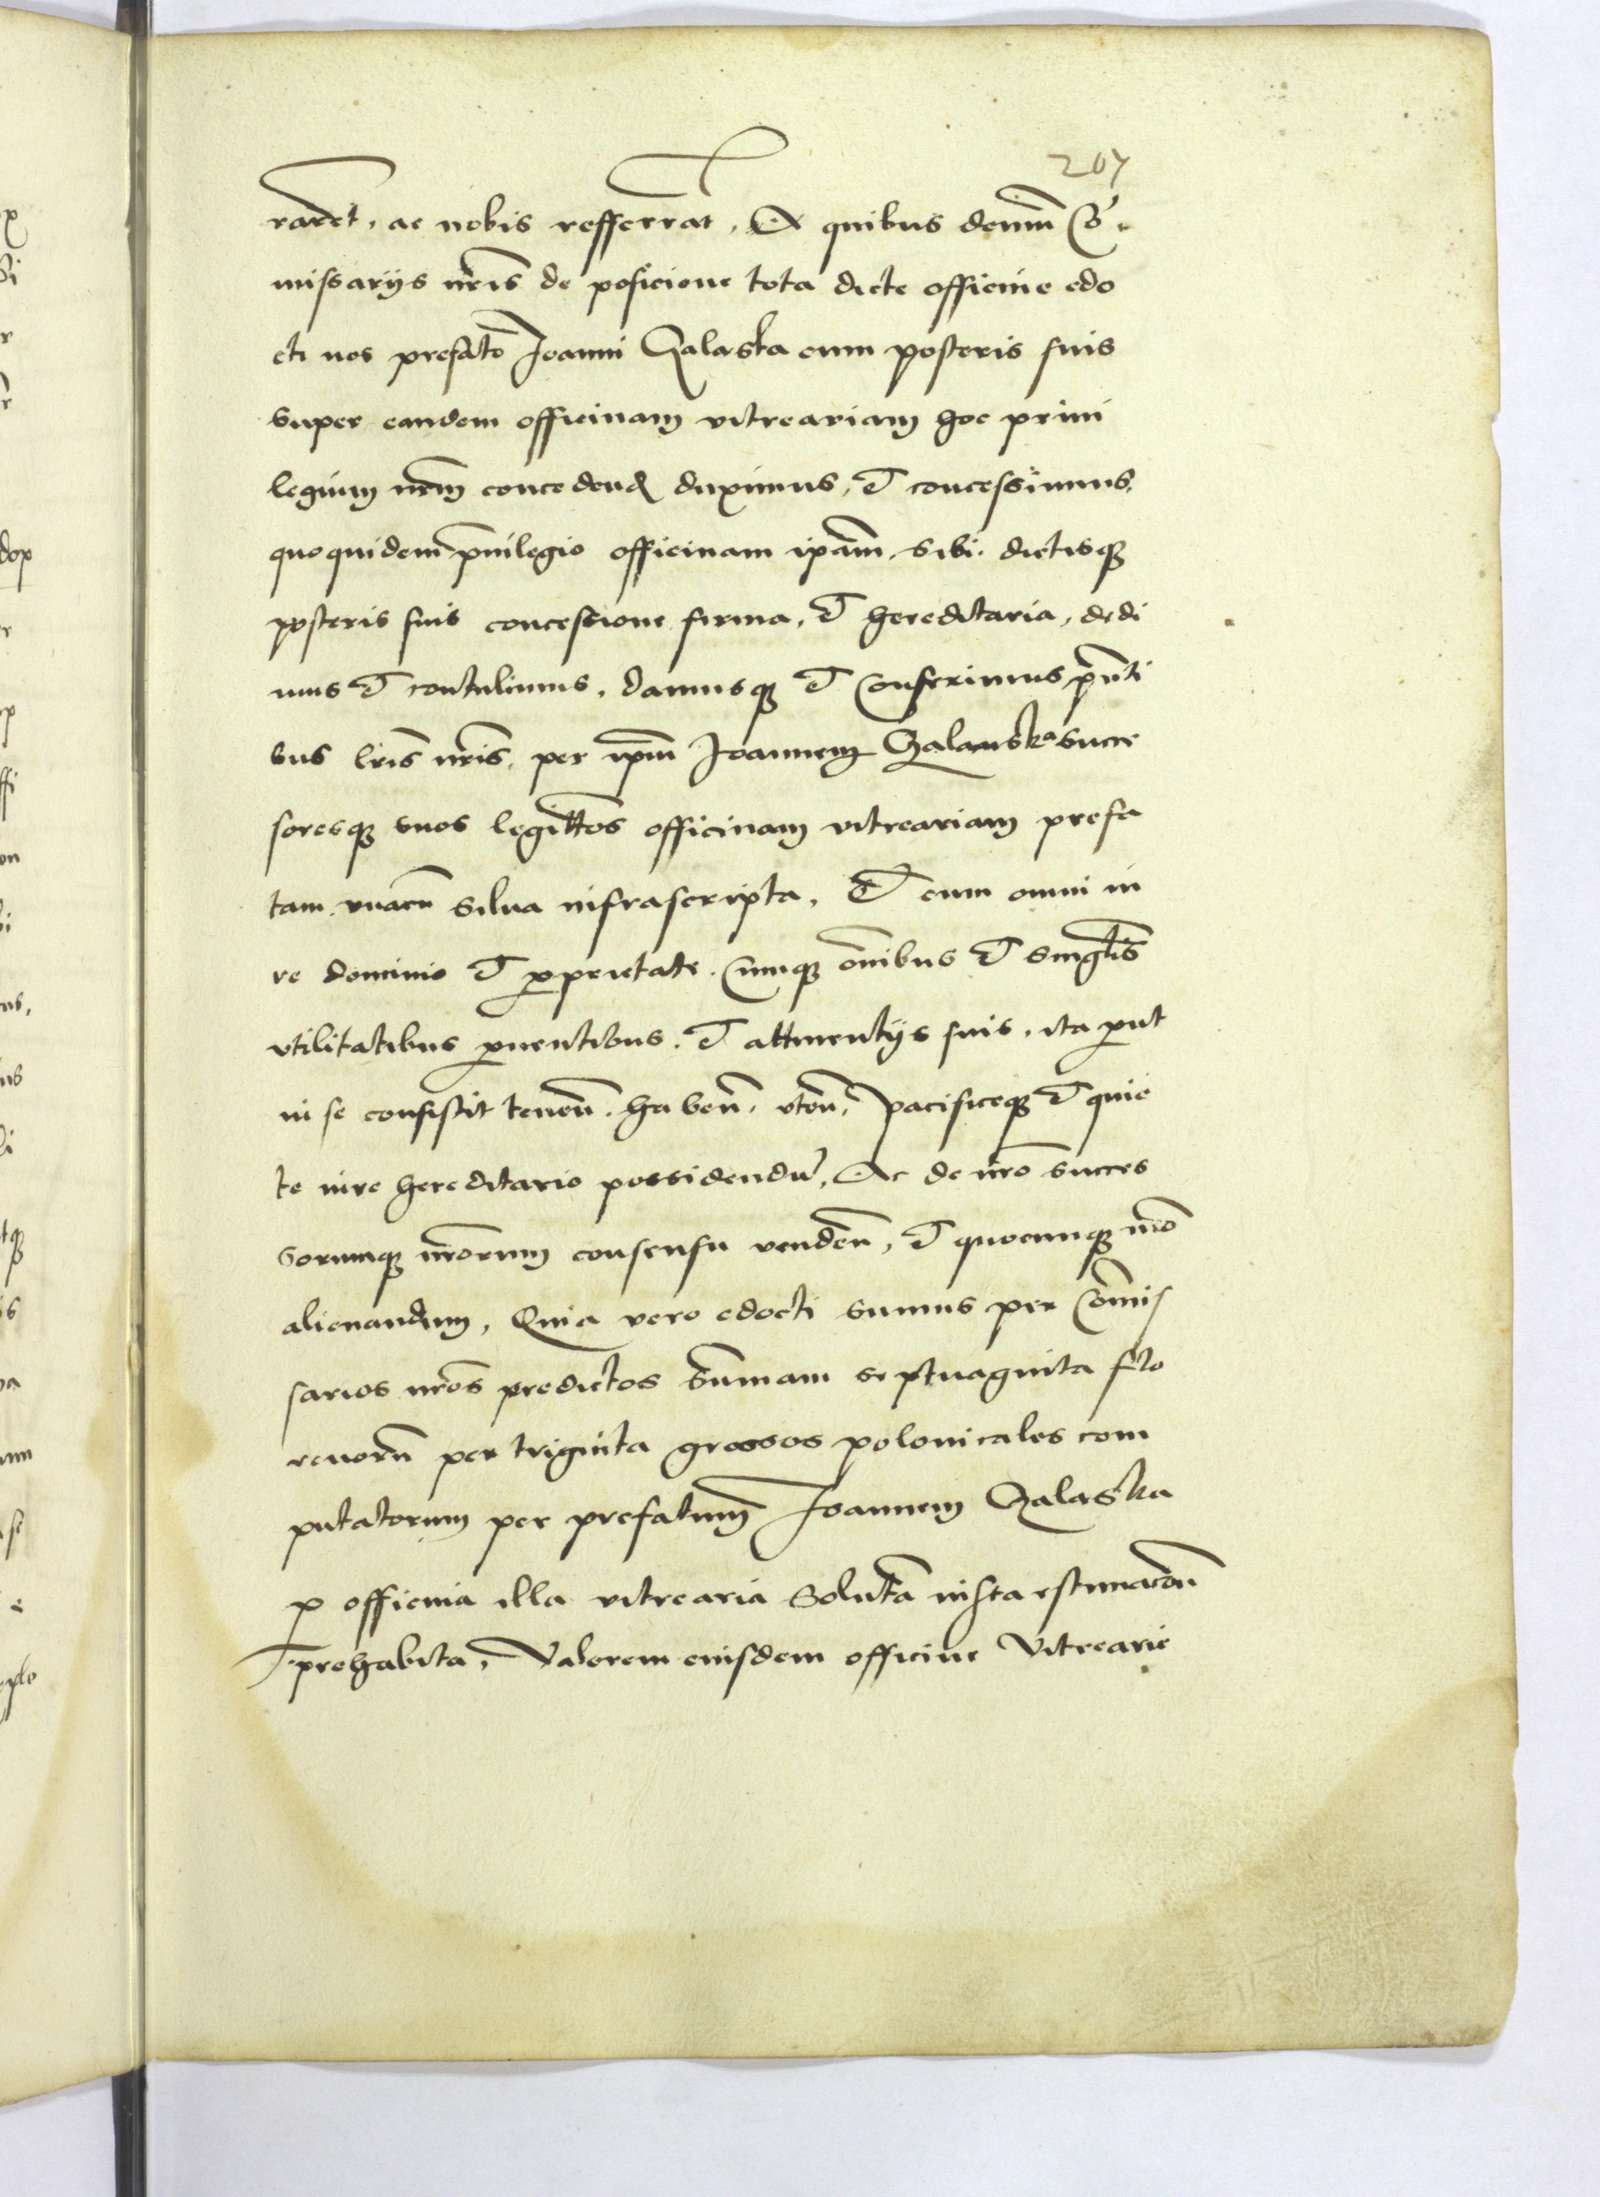 207
raret, ac nobis refferrat, Ex quibus demum Co͂
missarijs nr̃is de posicione tota dicte officine edo
cti nos prefato Joanni Galaska cum posteris suis
super eandem officinam vitreariam hoc priui
legium nr̃m concedend duximus, et concessimus,
quoquidem priuilegio officinam ip̃am, sibi, dictisq
posteris suis concessione firma, et hereditaria, dedi
mus et contulimus, damusq et Conferimus pñti
bus lr̃is nr̃is, per ip̃m Joannem Galanska succes
soresq suos legittos officinam vitreariam prefa
tam, vnacũ silua infrascripta, Et cum omni iu
re dominio et ꝓprietate, Cumq õmibus et singl̃is
vtilitatibus ꝓuentibus, et attinentijs suis, ita ꝓut
in se consistit tenen̄, haben̄, vten̄, pacificeq et quie
te iure hereditario possidendũ, Ac de nr̃o succes
sorumq nr̃orum consensu venden̄, et quocumq mõ
alienandum, Quia vero edocti sumus per Com̃is
sarios nr̃os predictos Sum̃am septuaginta flo
renorũ per triginta grossos polonicales com
putatorum per prefatum Joannem Galaska
ꝓ officina illa vitrearia Soluta iusta estimacõn
prehabita, Valorem eiusdem officine Vitrearie